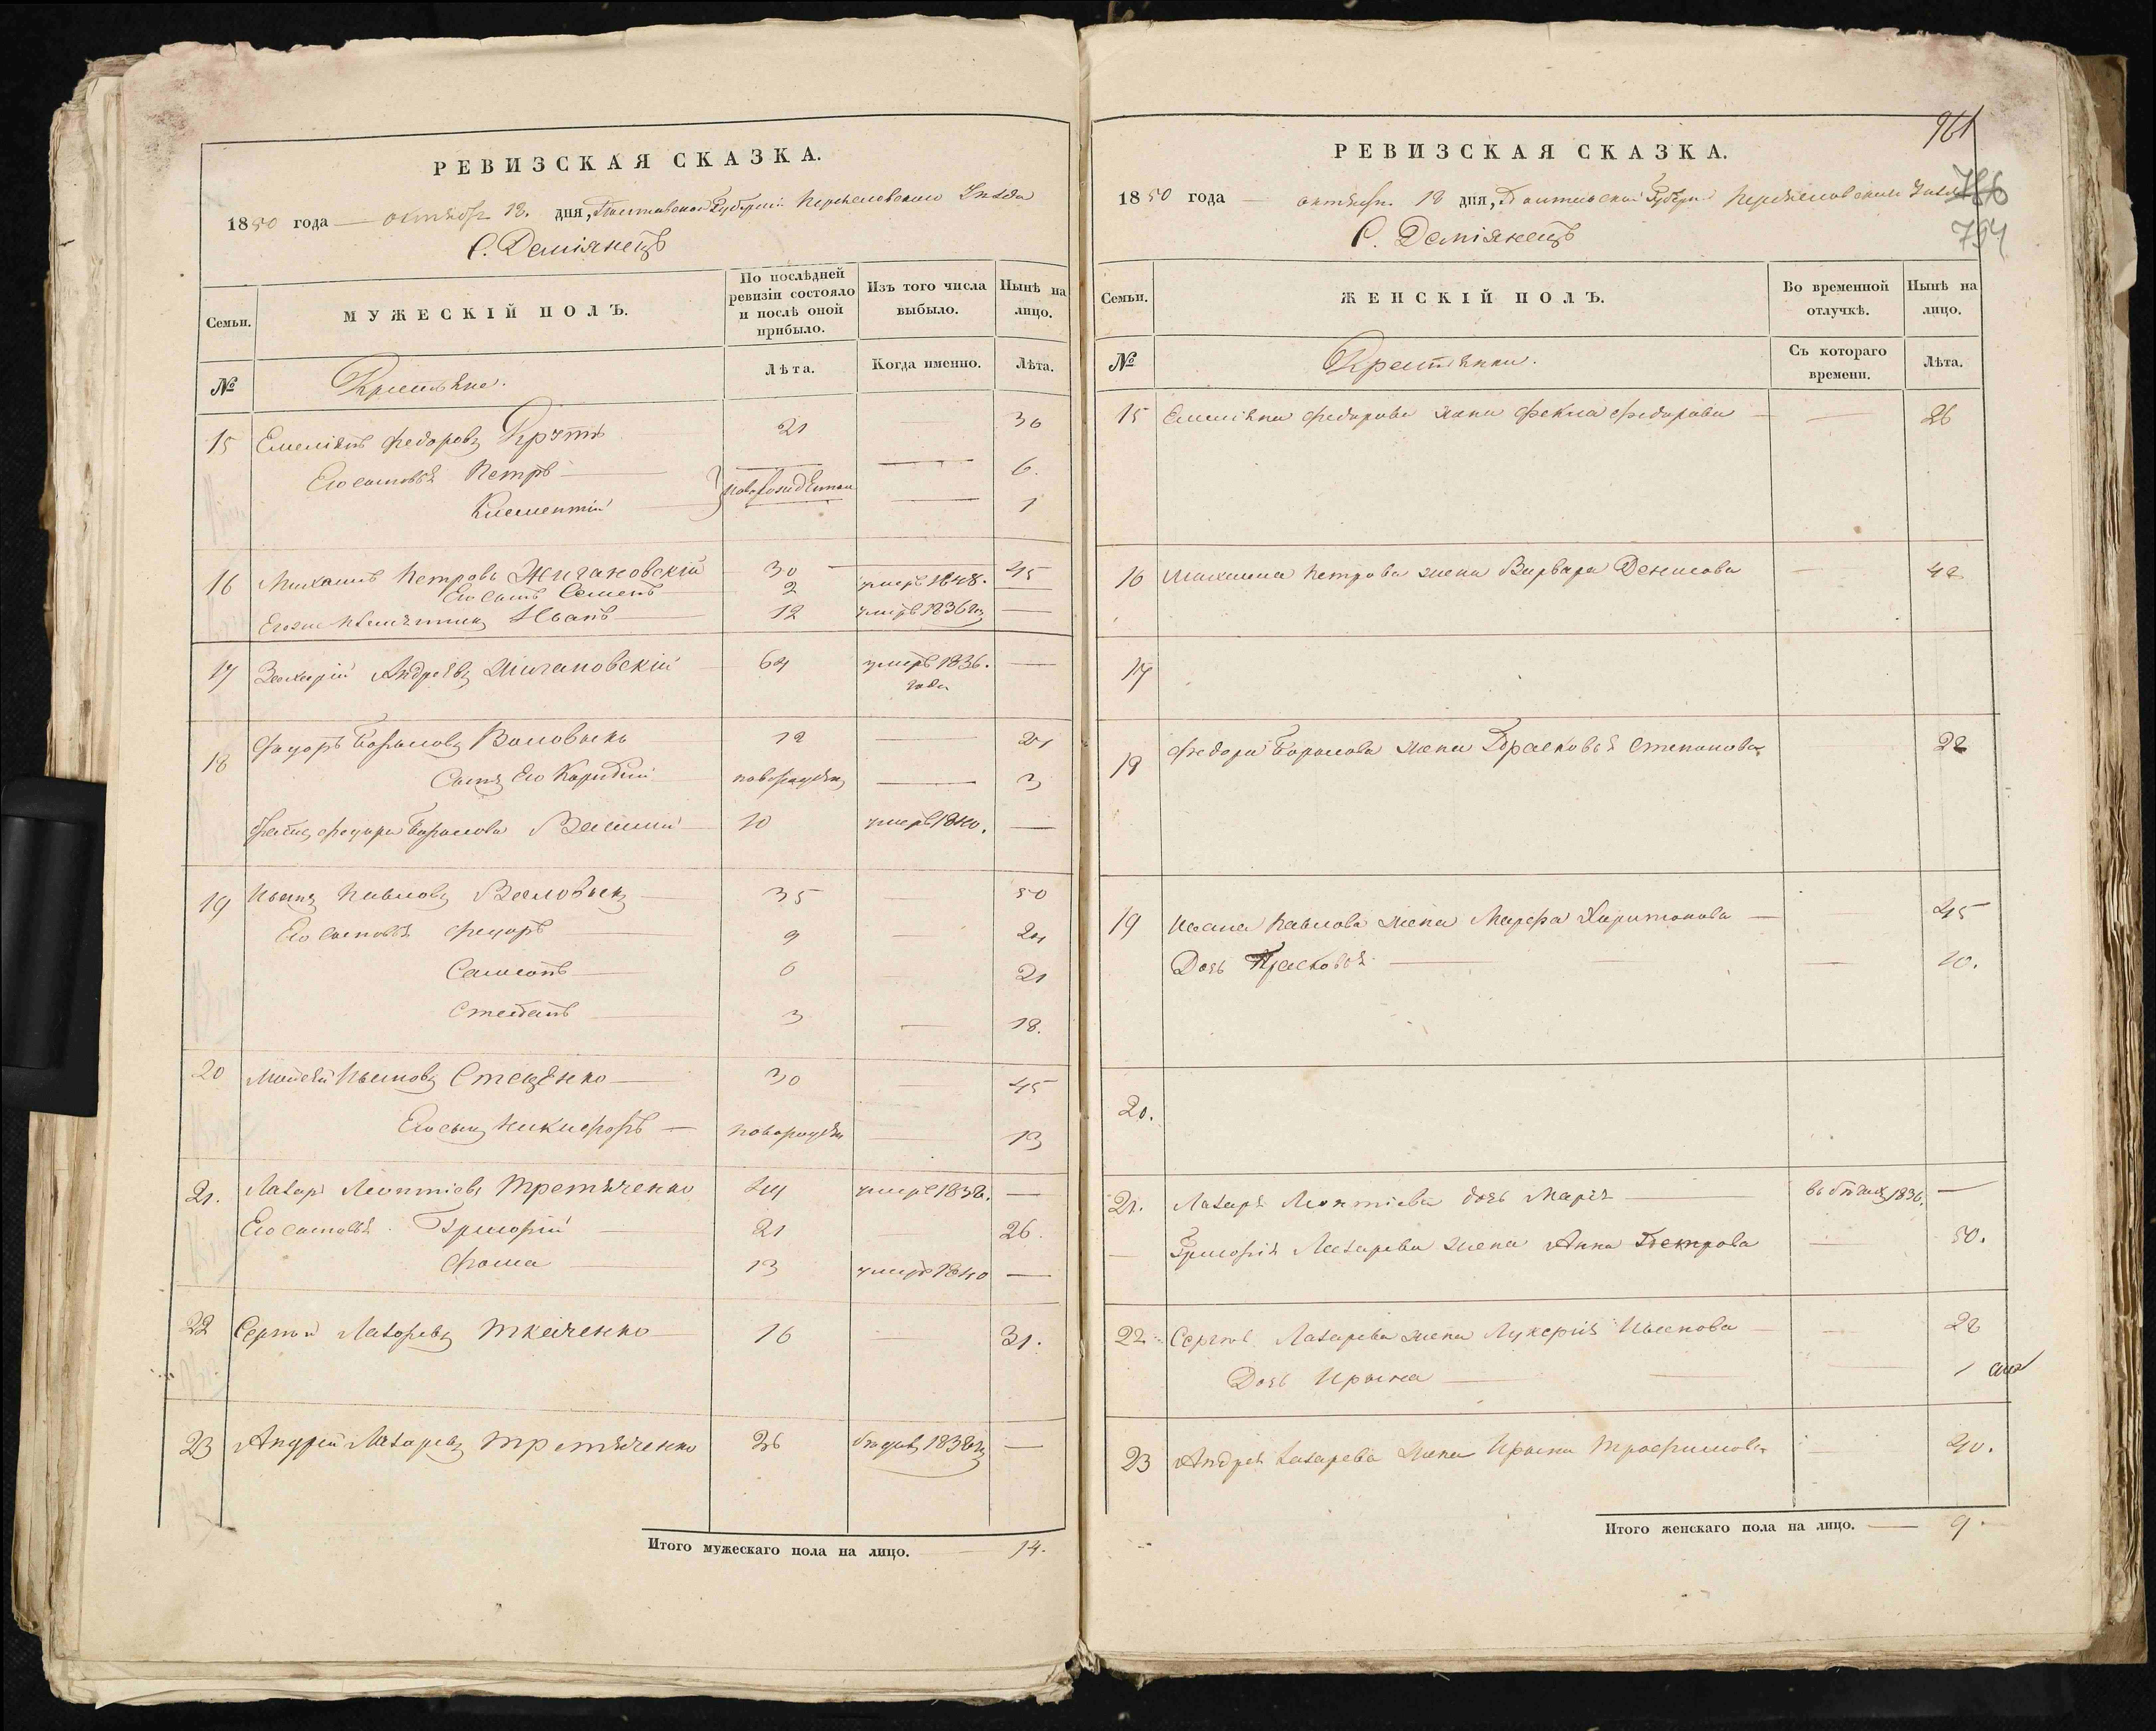 РЕВИЗСКАЯ СКАЗКА.
1850 года октября 18. дня, Полтавской Губернии Переяславского Уезда
С. Демiянецъ
Семьи.
МУЖЕСКІЙ ПОЛЪ.
По послѣдней ревизіи состояло и послѣ оной прибыло.
Изъ того числа выбыло.
Нынѣ на лицо.
№
Крестьяне.
Лѣта.
Когда именно.
Лѣта.
15 Емеліянъ Федоровъ Крутъ 21 — 36
Его сыновья Петръ — 6.
Климентій новорожденные — 1
16 Михаилъ Петровъ Жигановскій 30 — 45
Его сынъ Семенъ 2 умеръ 1848. —
Его же племянникъ Иванъ 12 умеръ 1836 —
17 Захарій Андреевъ Жигановскій 64 умеръ 1836. —
года
18 Федоръ Воловикъ 12 —
Сынъ Его — 3
Братъ Федора Василий 10 умеръ 1840. —
19 Иванъ Павловъ Воловикъ 35 — 50
Его сыновья Федоръ 9 — 24
Самсонъ 6 — 21
Степанъ 3 — 18.
20 Мойсей Стеценко 30 — 45
Его сынъ Никифоръ — — 13
21. Лазарь Леонтіевъ Третяченко умеръ 1838. —
Его сыновья Григорій 21 — 26.
Фома 13 умеръ 1840 —
22 Сергѣй Лазаревъ Ткаченко 16 — 31.
23 Андрей Лазаревъ Третяченко 26 1838 —
Итого мужескаго пола на лицо. — 14.
961
786
794
РЕВИЗСКАЯ СКАЗКА.
1850 года — октября 18 дня, Полтавской Губерн Переяславского Уезда
С. Демiянецъ
Семьи.
ЖЕНСКІЙ ПОЛЪ.
Во временной отлучкѣ.
Нынѣ на лицо.
№
Крестьянки.
Съ котораго времени.
Лѣта.
15 Емеліяна Федорова жена Фекла Федорова — 26
16 Михаила Петрова жена Варвара Денисова — 42
17
18 Федора жена Парасковья Степанова 22
19 Ивана Павлова жена Марфа Харитонова — 45
Дочь Прасковья — — 10.
20.
21. Лазаря Леонтіева дочь Марія — въ бѣгахъ 1836. —
Григорія Лазарева жена Анна Петрова — 30.
22 Сергѣя Лазарева жена Лукерія — 28
Дочь Ирина — — 1
23 Андрея Лазарева жена Ирина Трофимова — 40.
Итого женскаго пола на лицо. — 9.